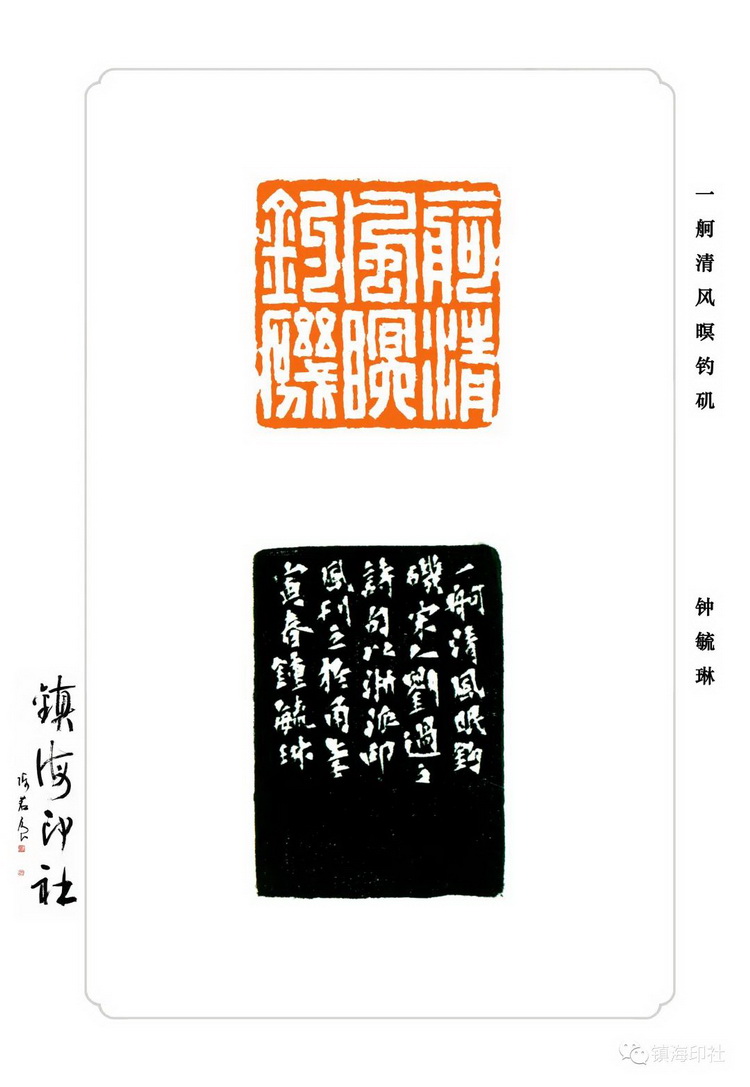 一舸清风暝钓矶
钟毓琳
一舸清
風暝
釣磯
一舸清風眠釣
磯宋人劉過之
詩句以浙派印
風刊之於甬壬
寅春鍾毓琳
鎮海印社
镇海印社